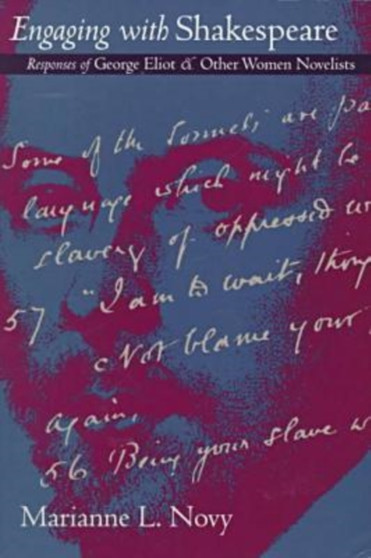 Engaging with Shakespeare
Responses of George Eliot & Other Women Novelists
Some of the Sonnets, are pa
language which might be
slavery of oppressed
57 "I am to wait, thoug
Not blame your
again,
56 'Being your slave w
Marianne L. Novy